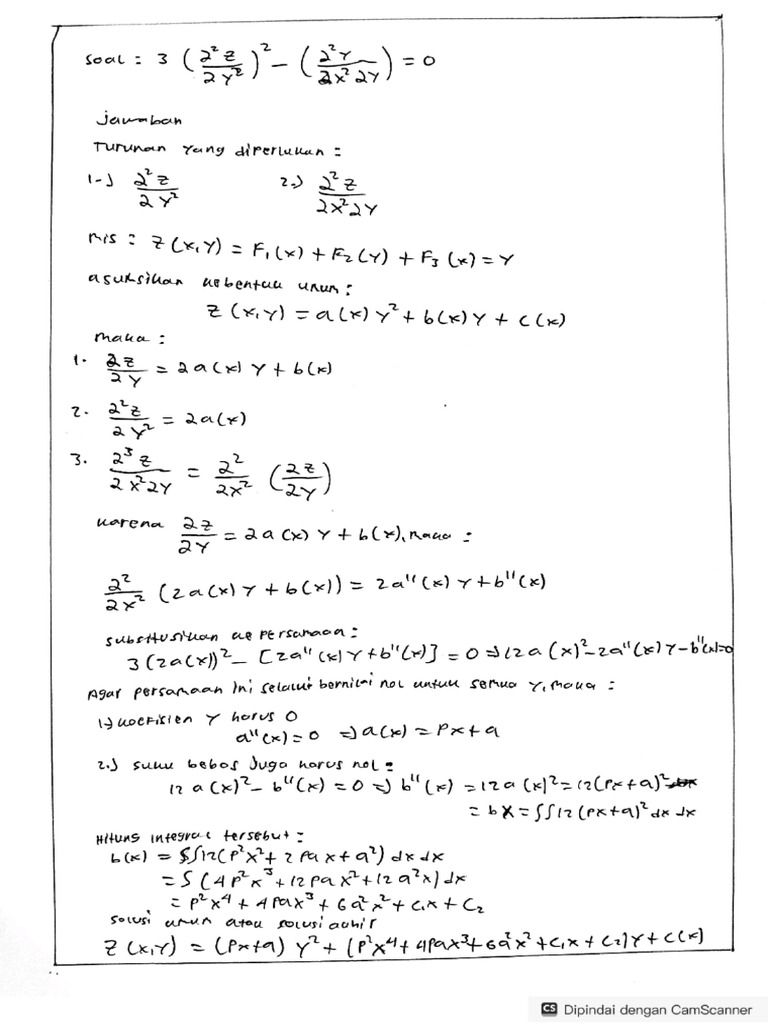 soal : 3 (∂²z/∂y²)² - (∂²y/∂x²∂y) = 0
jawaban
Turunan yang diperlukan :
1.) ∂²z/∂y² 2.) ∂²z/∂x²∂y
mis : z(x,y) = F₁(x) + F₂(y) + F₃(x) = y
asuksikan kebentuk umum :
z(x,y) = a(x)y² + b(x)y + c(x)
maka :
1. ∂z/∂y = 2a(x)y + b(x)
2. ∂²z/∂y² = 2a(x)
3. ∂³z/∂x²∂y = ∂²/∂x² (∂z/∂y)
karena ∂z/∂y = 2a(x)y + b(x), maka :
∂²/∂x² (2a(x)y + b(x)) = 2a''(x)y + b''(x)
substitusikan ke persamaan :
3(2a(x))² - [2a''(x)y + b''(x)] = 0 ⇒ 12a(x)² - 2a''(x)y - b''(x) = 0
Agar persamaan ini selalu bernilai nol untuk semua y, maka :
1.) koefisien y harus 0
a''(x) = 0 ⇒ a(x) = px + q
2.) suku bebas juga harus nol :
12a(x)² - b''(x) = 0 ⇒ b''(x) = 12a(x)² = 12(px + q)²
= bx = ∫∫12(px + q)² dx dx
Hitung integral tersebut :
b(x) = ∫∫12(p²x² + 2pqx + q²) dx dx
= ∫(4p²x³ + 12pqx² + 12q²x) dx
= p²x⁴ + 4pqx³ + 6q²x² + c₁x + c₂
solusi umum atau solusi akhir
z(x,y) = (px + q)y² + (p²x⁴ + 4pqx³ + 6q²x² + c₁x + c₂)y + c(x)
CS Dipindai dengan CamScanner